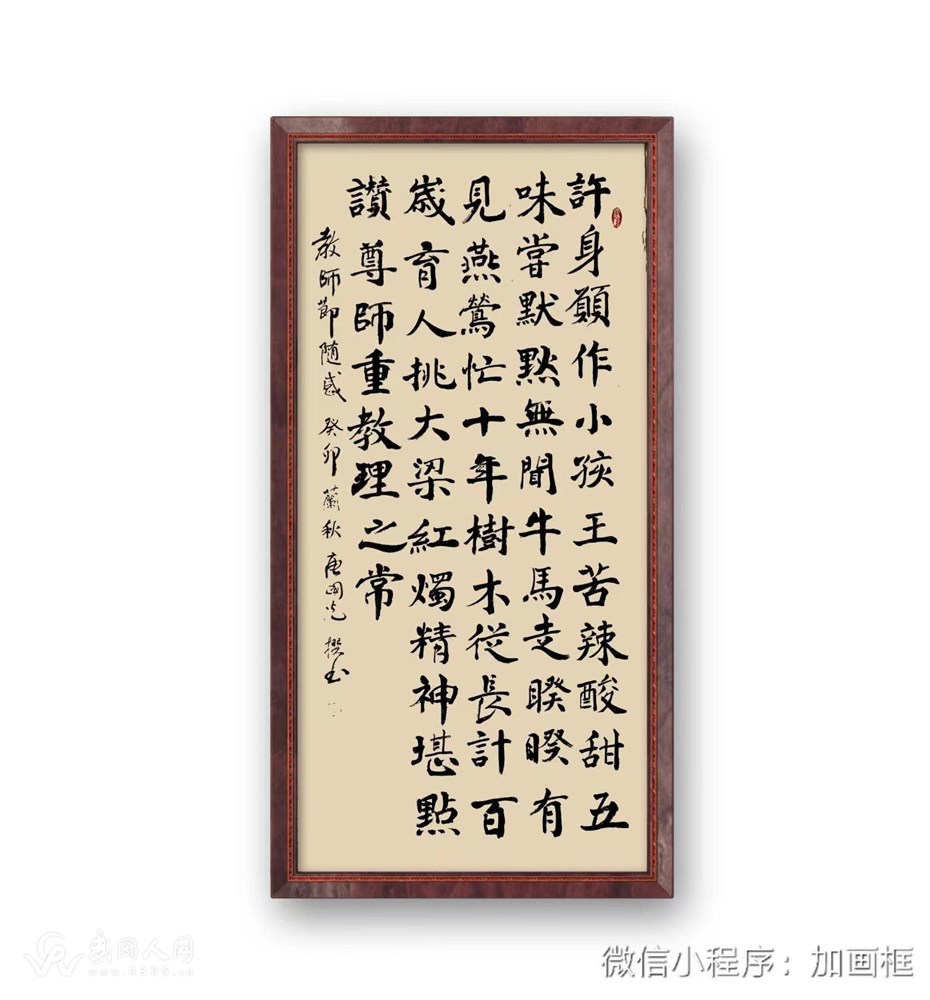 許身願作小孩王苦辣酸甜五
味嘗默默無聞牛馬走睽睽有
見燕鶯忙十年樹木從長計百
歲育人挑大梁紅燭精神堪點
讚尊師重教理之常
教師節隨感 癸卯 蘭秋 唐國光 撰書
武冈人网
www.4305.cn
微信小程序：加画框